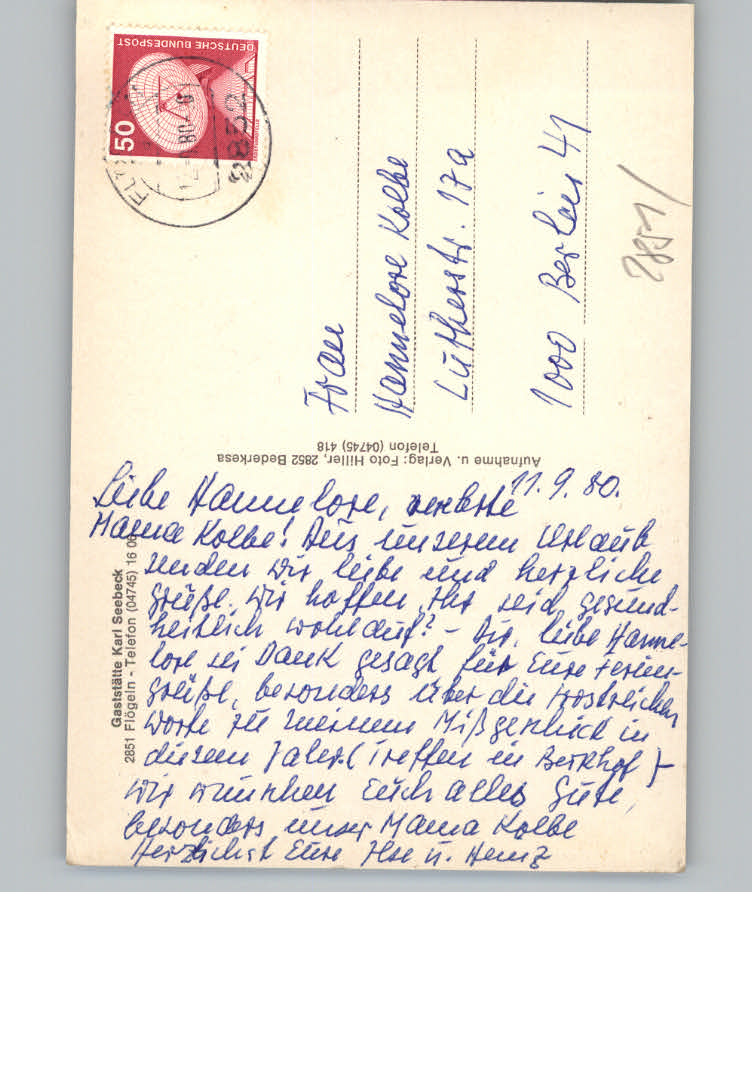 DEUTSCHE BUNDESPOST
50
2852
Frau
Hannelore Kolbe
Lutherstr. 17a
1000 Berlin 41
2851/
Aufnahme u. Verlag: Foto Hiller, 2852 Bederkesa
Telefon (04745) 418
Gaststätte Karl Seebeck
2851 Flögeln - Telefon (04745) 16 06
11.9.80.
Liebe Hannelore, verehrte
Mama Kolbe! Aus unserem Urlaub
senden wir liebe und herzliche
Grüße. Wir hoffen Ihr seid gesund-
heitlich wohlauf? - Dir, liebe Hanne-
lore sei Dank gesagt für Eure Ferien-
grüße, besonders über die trostreichen
Worte zu meinem Mißgeschick in
diesem Jahr. (Treffen in Berkhof)-
Wir wünschen Euch alles Gute,
besonders unser Mama Kolbe
Herzlichst Eure Ilse u. Heinz